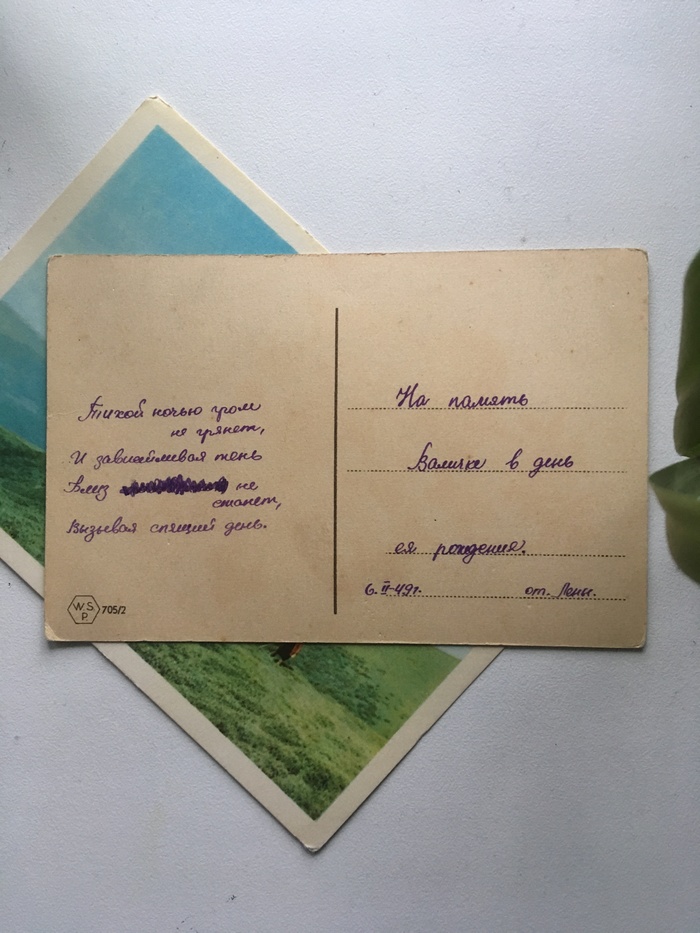 Тихой ночью гром
не грянет,
И завистливая тень
Близ не
станет,
Вызывая спящий день.
WS
P.
705/2
На память
Валичке в день
ея рождения.
6.II-49г.
от. Лены.